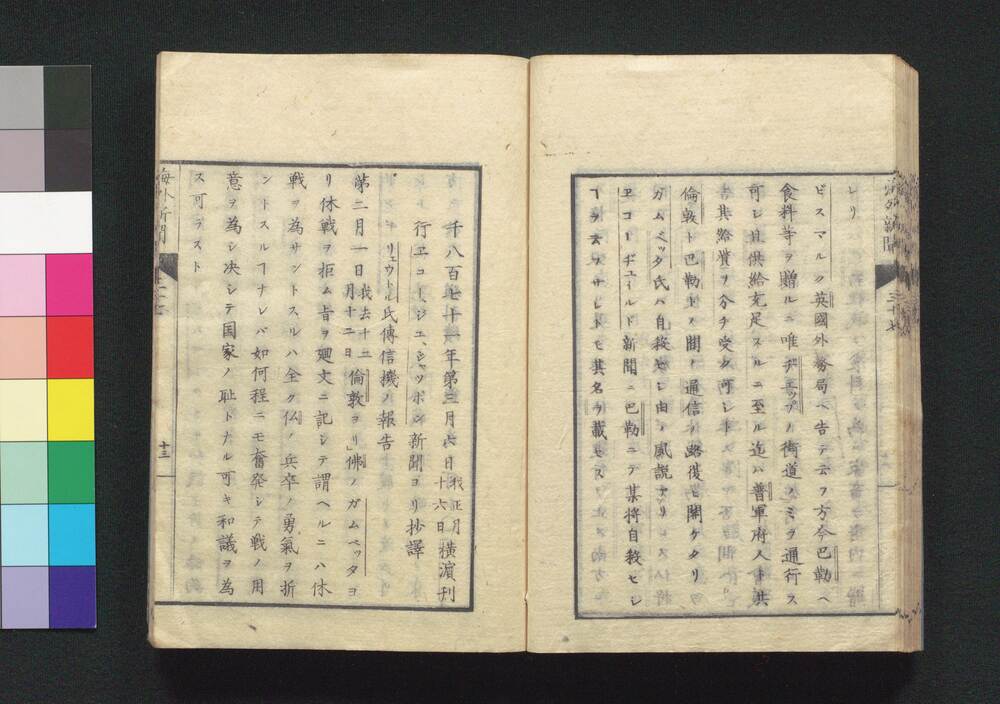 レリ
ビスマルク英國外務局ヘ告テ云フ方今巴勒ヘ
食料等ヲ贈ルニ唯ヂエップノ街道ノミヲ通行ス
可シ且供給充足スルニ至ル迄ハ普軍府人ト共
ニ其路費ヲ分チ受ク可シト
倫敦ト巴勒トノ間ノ通信ノ路復ヒ開ケタリ
ガムベッタ氏ハ自殺セシ由ノ風説アリ
エコーヂュイルド新聞ニ巴勒ニテ某将自殺セシ
ヿヲ云フサレトモ其名ヲ載セス
海外新聞
三十七
千八百七十一年第三月六日我正月十六日横濵刊
行エコー、ジユ、ジャッポン新聞ヨリ抄譯
リェウトル氏傳信機ノ報告
第二月一日我去十二月十二日倫敦ヨリ」佛ノガムベッタヨ
リ休戦ヲ拒ム旨ヲ廻文ニ記シテ謂ヘルニハ休
戦ヲ為サントスルハ全ク仏ノ兵卒ノ勇氣ヲ折
ントスルヿナレバ如何程ニモ奮発シテ戦ノ用
意ヲ為シ决シテ国家ノ耻トナル可キ和議ヲ為
ス可ラスト
海外新聞
十三